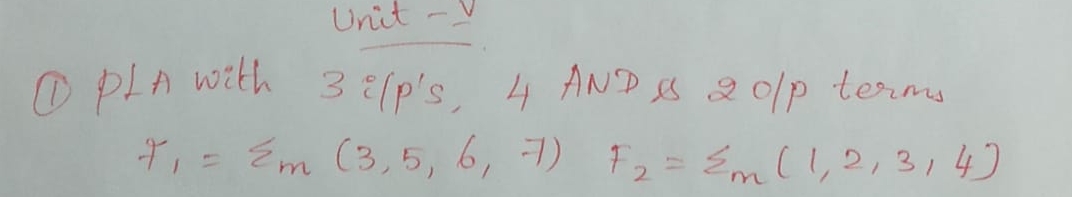 Unit - V
① PLA with 3 i/p's, 4 AND & 2 o/p terms
F₁ = Σm (3, 5, 6, 7) F₂ = Σm (1, 2, 3, 4)